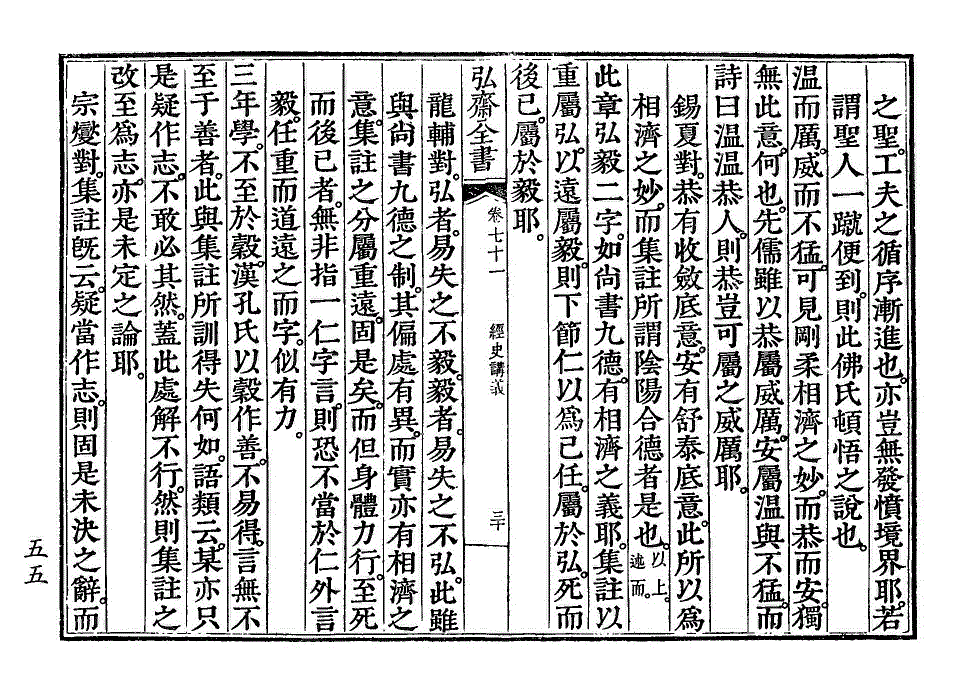 之聖。工夫之循序漸進也。亦豈無發憤境界耶。若
謂聖人一蹴便到。則此佛氏頓悟之說也。
温而厲。威而不猛。可見剛柔相濟之妙。而恭而安。獨
無此意。何也。先儒雖以恭屬威厲。安屬温與不猛。而
詩曰温温恭人。則恭豈可屬之威厲耶。
錫夏對。恭有收斂底意。安有舒泰底意。此所以爲
相濟之妙。而集註所謂陰陽合德者是也。以上。述而。
此章弘毅二字。如尙書九德。有相濟之義耶。集註以
重屬弘。以遠屬毅。則下節仁以爲己任。屬於弘。死而
後已。屬於毅耶。
弘齋全書 卷七十一 經史講義 三十
龍輔對。弘者。易失之不毅。毅者。易失之不弘。此雖
與尙書九德之制。其偏處有異。而實亦有相濟之
意。集註之分屬重遠。固是矣。而但身體力行。至死
而後已者。無非指一仁字言。則恐不當於仁外言
毅。任重而道遠之而字。似有力。
三年學。不至於穀。漢孔氏以穀作善。不易得。言無不
至于善者。此與集註所訓得失何如。語類云。某亦只
是疑作志。不敢必其然。蓋此處解不行。然則集註之
改至爲志。亦是未定之論耶。
宗燮對。集註旣云。疑當作志。則固是未決之辭。而
五五